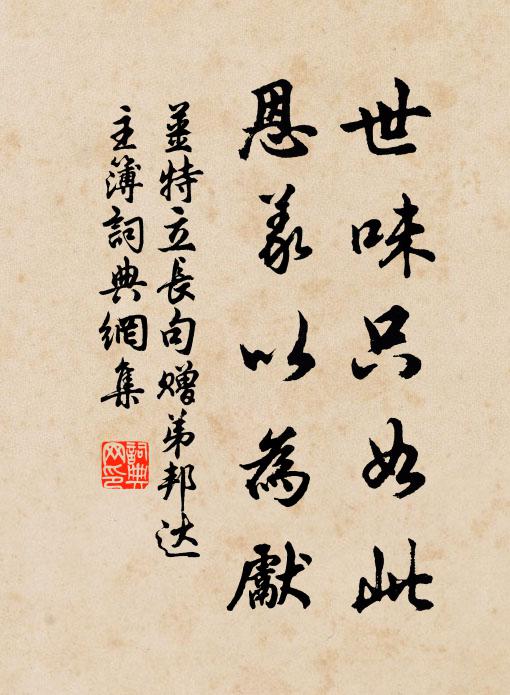 世味只如此
恩義以為獻
姜特立長句赠弟邦达
主簿詞典網集
詞典
网印